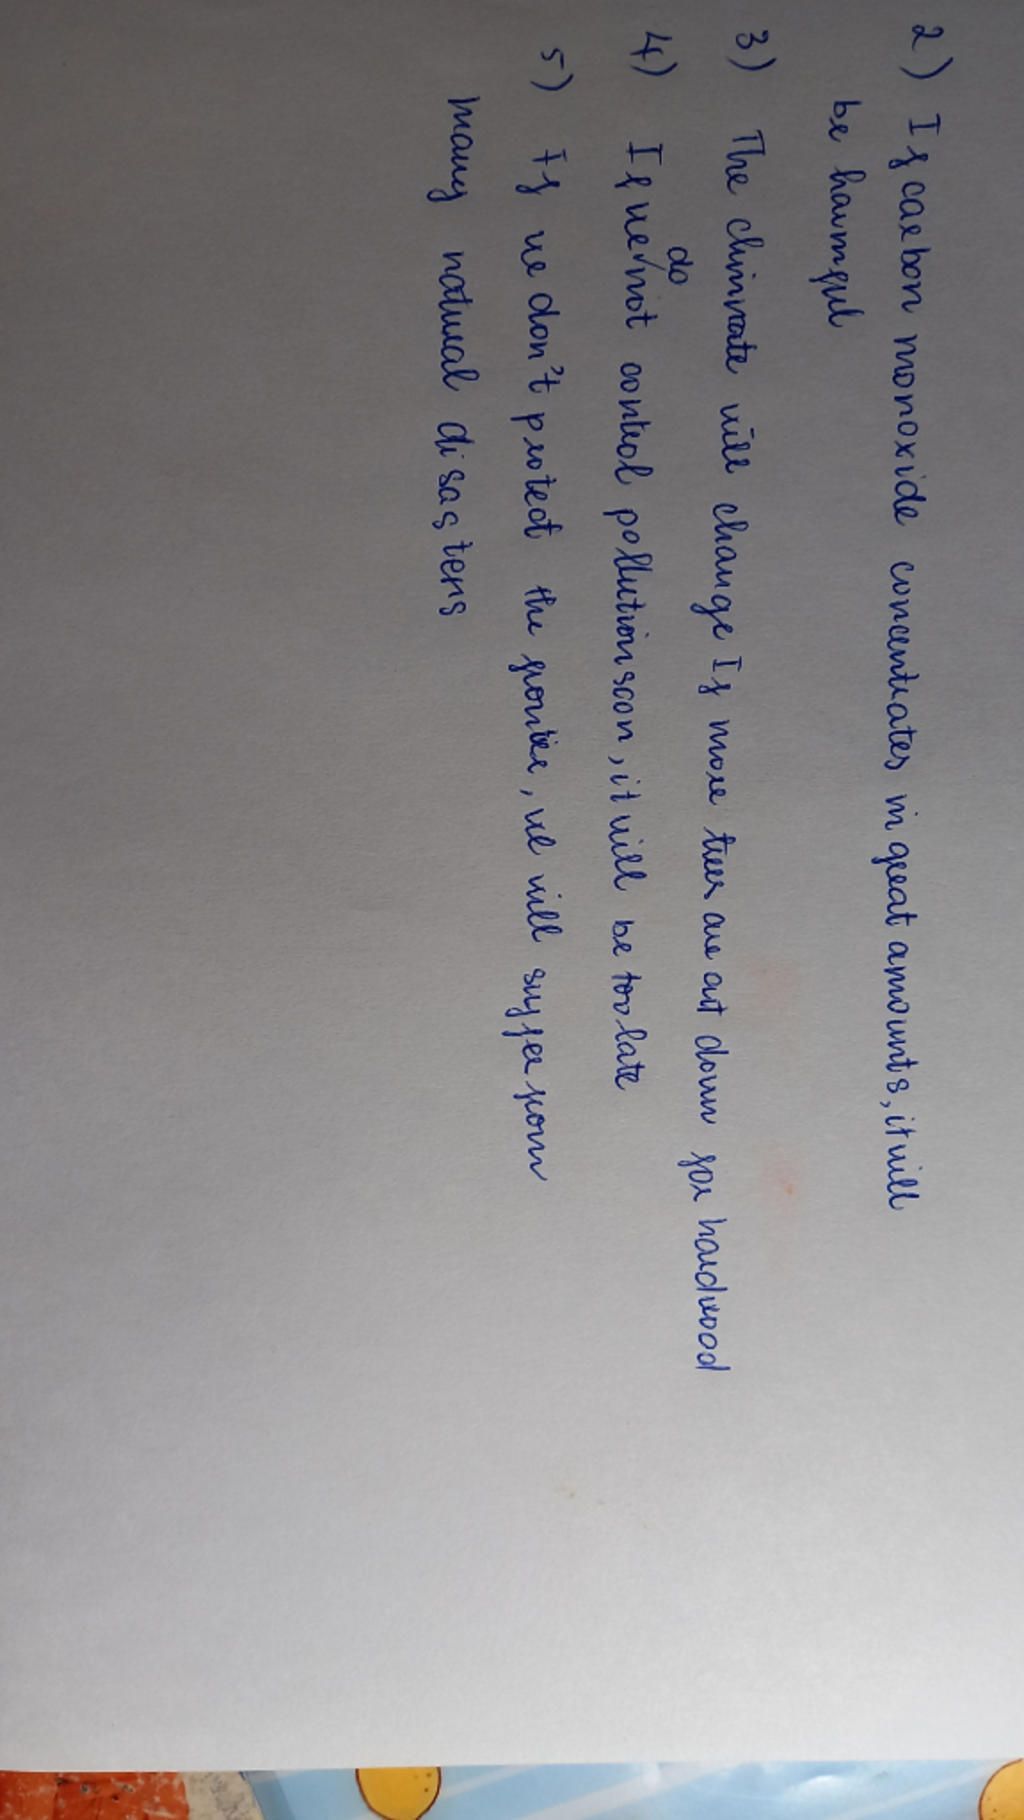 2) If carbon monoxide concentrates in great amounts, it will
be harmful
3) The climate will change If more trees are cut down for hardwood
4) If we do not control pollution soon, it will be too late
5) If we don't protect the , we will suffer from
many natural disasters